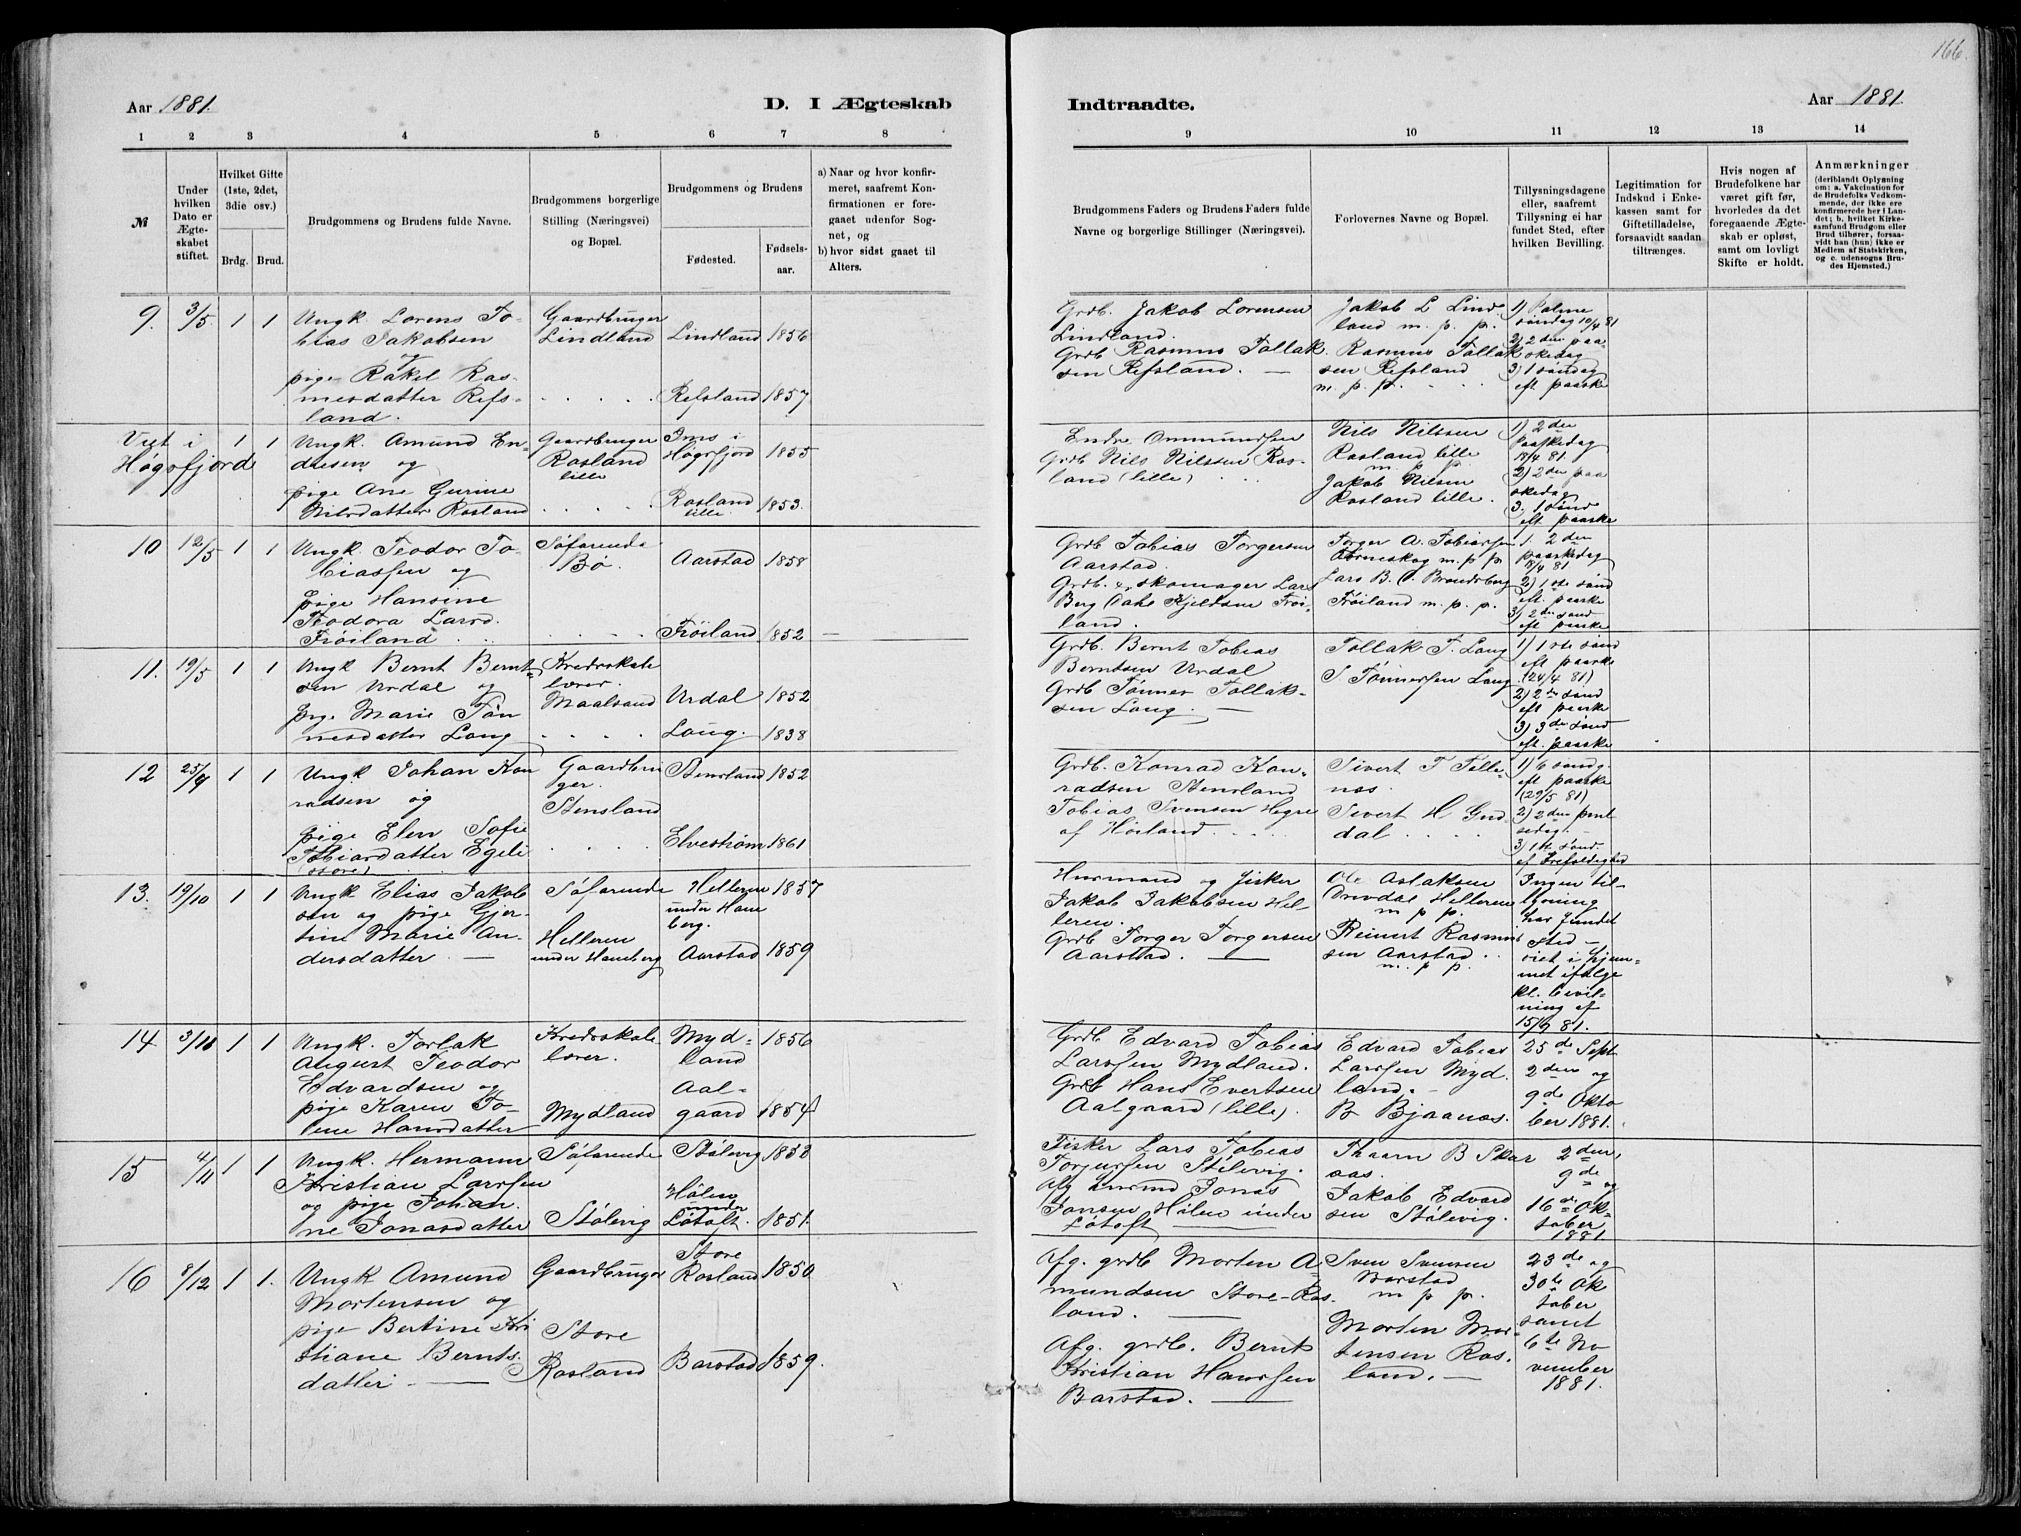 166.
Aar 1881.
D. I Ægteskab
Indtraadte.
Aar 1881.
1 2 3 4 5 6 7 8
9 10 11 12 13 14
№
Under hvilken Dato er Ægteskabet stiftet.
Hvilket Gifte (1ste, 2det, 3die osv.)
Brdg. Brud.
Brudgommens og Brudens fulde Navne.
Brudgommens borgerlige Stilling (Næringsvei) og Bopæl.
Brudgommens og Brudens
Fødested.
Fødselsaar.
a) Naar og hvor konfirmeret, saafremt Konfirmationen er foregaaet udenfor Sognet, og
b) hvor sidst gaaet til Alters.
Brudgommens Faders og Brudens Faders fulde Navne og borgerlige Stillinger (Næringsvei).
Forlovernes Navne og Bopæl.
Tillysningsdagene eller, saafremt Tillysning ei har fundet Sted, efter hvilken Bevilling.
Legitimation for Indskud i Enkekassen samt for Giftetilladelse, forsaavidt saadan tiltrænges.
Hvis nogen af Brudefolkene har været gift før, hvorledes da det foregaaende Ægteskab er opløst, samt om lovligt Skifte er holdt.
Anmærkninger
(deriblandt Oplysning om: a. Vakcination for de Brudefolks Vedkommende, der ikke ere konfirmerede her i Landet; b. hvilket Kirkesamfund Brudgom eller Brud tilhører, forsaavidt han (hun) ikke er Medlem af Statskirken, og c. udensogns Brudes Hjemsted.)
9. 3/5. 1 1
Ungk. Lorens To-
bias Jakobsen
og
pige Rakel Ras-
musdatter Refs-
land.
Gaardbruger
Lindland
Lindland 1856
Refsland 1857
Grdb. Jakob Lorensen
Lindland.
Grdb Rasmus Tollak-
sen Refsland. —
Jakob L Lind-
land m. p. p.
Rasmus Tollak
sen Refsland
m. p. p.
1) Palme
søndag 10/4 81
2) 2den paa-
skedag
3) 1 søndag
eft. paaske
Viet i
Høgsfjord
1 1
Ungk. Amund En-
dresen og
pige Ane Gurine
Nilsdatter Rosland
Gaardbruger
Rosland
lille
Ims i
Høgsfjord 1855
Rosland
lille 1853.
Endre Ommundsen
Grdb Nils Nilssen Ros-
land (lille)
Nils Nilssen
Rosland lille
m p p
Jakob Nilsen
Rosland lille.
1) 2den
Paaskedag
18/4 81.
2) 2den paa
skedag
3. 1 sønd
eft paaske
10 12/5 1 1
Ungk. Teodor To-
biassen og
pige Hansine
Teodora Larsd.
Frøiland
Søfarende
Bø.
Aarstad 1858
Frøiland 1852 —
Grdb Tobias Torgersen
Aarstad.
Grdb. & skomager Lars
Berg Kjeldsen Frøi-
land.
Torger A. Tobiassen
m. p. p
Lars B.
Frøiland m. p. p.
1. 2den
paaskedag
18/4 81
2) 1ste sønd
eft. paaske
3) 2den sønd
eft paaske
11. 19/5 1 1
Ungk Bernt Bernt-
sen Urdal og
pige Marie Tøn
nesdatter Laug
Kredsskole
lærer.
Maalsand
Urdal 1852
Laug. 1838
Grdb. Bernt Tobias
Berntsen Urdal
Grdb Tønnes Tollak-
sen Laug. —
Tollak T. Laug
S Tønnessen Laug
1) 1ste sønd
eft paaske
(24/4 81)
2) 2den sønd
eft paaske
3) 3de sønd
eft. paaske
12 25/9 1 1
Ungk Johan Kon
radsen og
pige Elen Sofie
Tobiasdatter Egeli
(store)
Gaardbru
ger.
Stensland
Stensland 1852
Elvestrøm 1861
Grdb. Konrad Kon-
radsen Stensland
Tobias Svensen Hegre
af Høiland
Sivert T Telle-
nes.
Sivert H Gud
dal
1) 6 søndg.
eft paaske
(29/5 81)
2) 2den pint
sedag. —
3) 1ste sønd.
ef Trefoldighed
13. 19/10 1 1
Ungk Elias Jakob
sen og pige Gjer-
tine Marie An-
dersdatter. —
Søfarende
Helleren
under Haneberg
Helleren 1857
under Hane
berg.
Aarstad 1859
Husmand og fisker
Jakob Jakobsen Hel-
leren.
Grdb Torger Torgersen
Aarstad. —
Ole Aslaksen
Helleren
m p p.
Reinert Rasmus
sen Aarstad
m. p p.
Ingen til-
lysning
har fundet
sted —
viet i hjem-
met ifølge
kl. bevil-
ning af
15/9 81.
14 3/11 1 1
Ungk. Torlak
August Teodor
Edvardsen og
pige Karen To-
lene Hansdatter
Kredsskole
lærer.
Mydland
Myd-
land 1856
Aal-
gaard 1854
Grdb Edvard Tobias
Larssen Mydland.
Grdb Hans Evertsen
Aalgaard (lille).
Edvard Tobias
Larssen Myd-
land. —
B Bjaanæs.
25de Sept
2den og
9de Okto
ber 1881.
15 4/11 1 1
Ungk. Hermann
Kristian Larssen
og pige Johan-
ne Jonasdatter
Søfarende
Stølevig
Stølevig 1858
Hølen
under
Løtoft. 1851.
Fisker Lars Tobias
Torjussen Stølevig.
Afg husmd Jonas
Jansen Hølen under
Løtoft —
Thaarn B Skar
aas.
Jakob Edvard
sen Stølevig.
2den,
9de og
16de Ok-
tober
1881
16 8/12 1 1.
Ungk Amund
Mortensen og
pige Bertine Kri
stiane Bernts-
datter. —
Gaardbruger
Store
Rosland
Store
Rosland 1850
Barstad 1859.
Afg. grdb Morten A-
mundsen Store-Ros-
land. —
Afg. grdb. Bernt
Kristian Hanssen
Barstad. —
Sven Svensen
Barstad
m p p.
Morten Mor-
tensen Ros-
land. —
23de og
30te Ok
tober
samt
6te No
vember
1881.